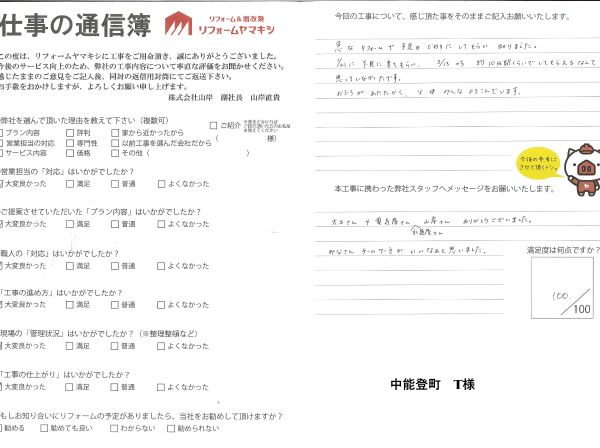 仕事の通信簿
リフォーム&増改築
リフォームヤマキシ
この度は、リフォームヤマキシに工事をご用命頂き、誠にありがとうございました。
今後のサービス向上のため、弊社の工事内容について率直な評価をお聞かせください。
感じたままのご意見をご記入後、同封の返信用封筒にてご返送下さい。
お手数をおかけしますが、よろしくお願い申し上げます。
株式会社山岸 副社長 山岸直貴
弊社を選んで頂いた理由を教えて下さい(複数可)
□ご紹介
( 様)
プラン内容 □評判 □家から近かったから
営業担当の対応 □専門性 □以前工事を選んだ会社だから
サービス内容 □価格 □その他( )
営業担当の「対応」はいかがでしたか?
大変良かった □満足 □普通 □よくなかった
ご提案させていただいた「プラン内容」はいかがでしたか?
大変良かった □満足 □普通 □よくなかった
職人の「対応」はいかがでしたか?
大変良かった □満足 □普通 □よくなかった
「工事の進め方」はいかがでしたか?
大変良かった □満足 □普通 □よくなかった
現場の「管理状況」はいかがでしたか?(※整理整頓など)
大変良かった □満足 □普通 □よくなかった
「工事の仕上がり」はいかがでしたか?
大変良かった □満足 □普通 □よくなかった
もしお知り合いにリフォームの予定がありましたら、当社をお勧めして頂けますか?
勧める □勧めても良い □わからない □勧められない
今回の工事について、感じ頂た事をそのままご記入お願いいたします。
急な リフォームで
思っていなかたです。
今後の参考に
させて頂くトン。
本工事に携わった弊社スタッフへメッセージをお願いいたします。
大工さん 山岸さん ありがとうございました。
みなさん チームワークが いいなぁと思いました。
満足度は何点ですか?
100
/100
中能登町 T様